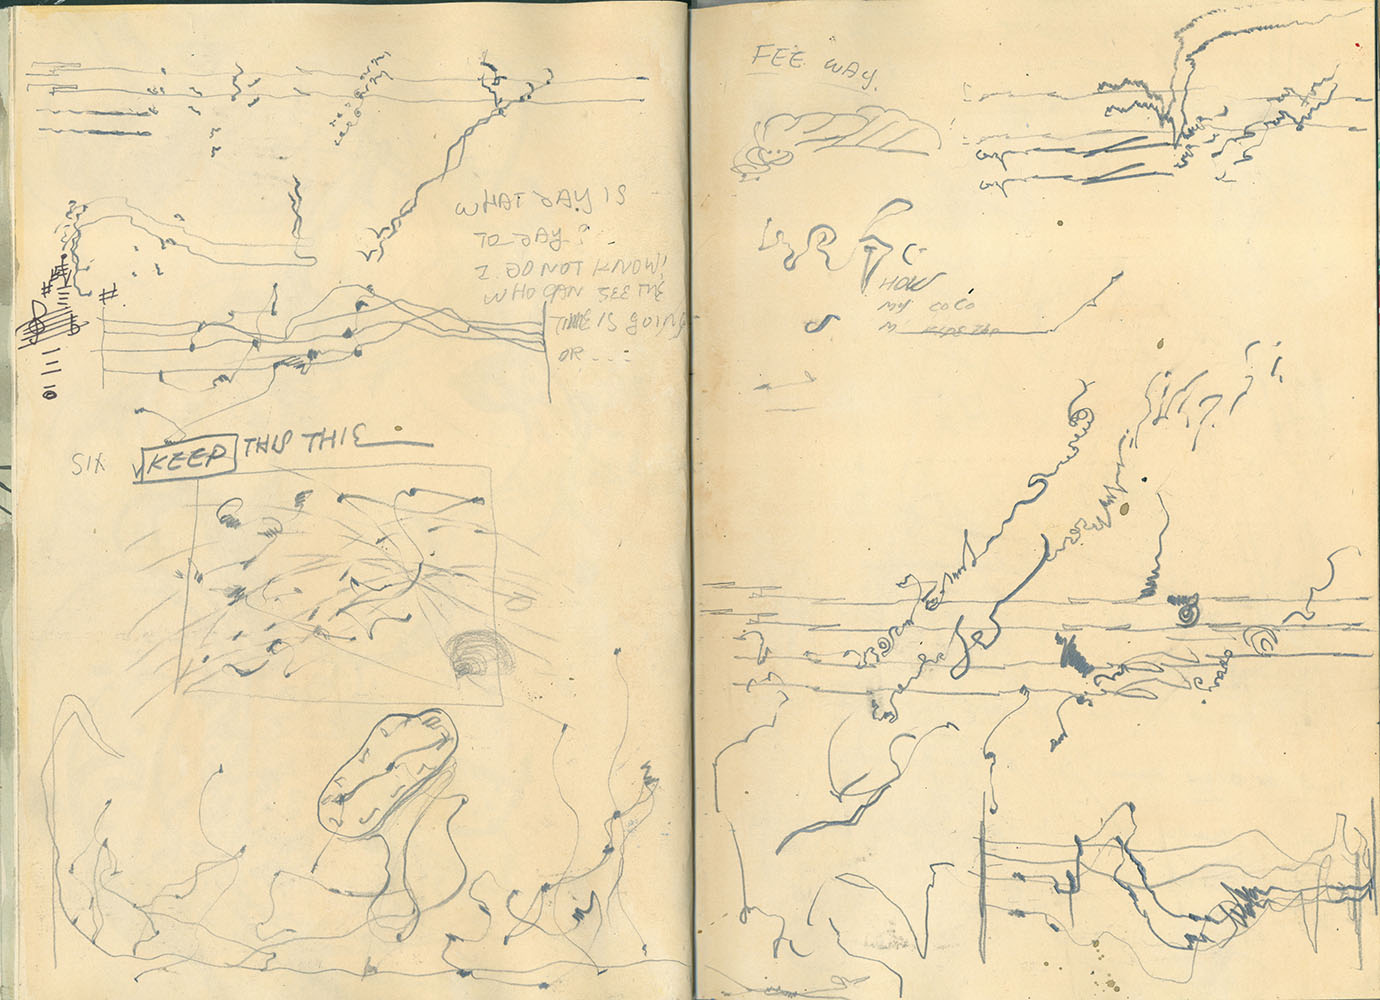 WHAT DAY IS
TO-DAY?
I DO NOT KNOW!
WHO CAN SEE THE
TIME IS GOING
OR ....
SIX
KEEP THIS THIS
FEE WAY.
HOW
MY COCO